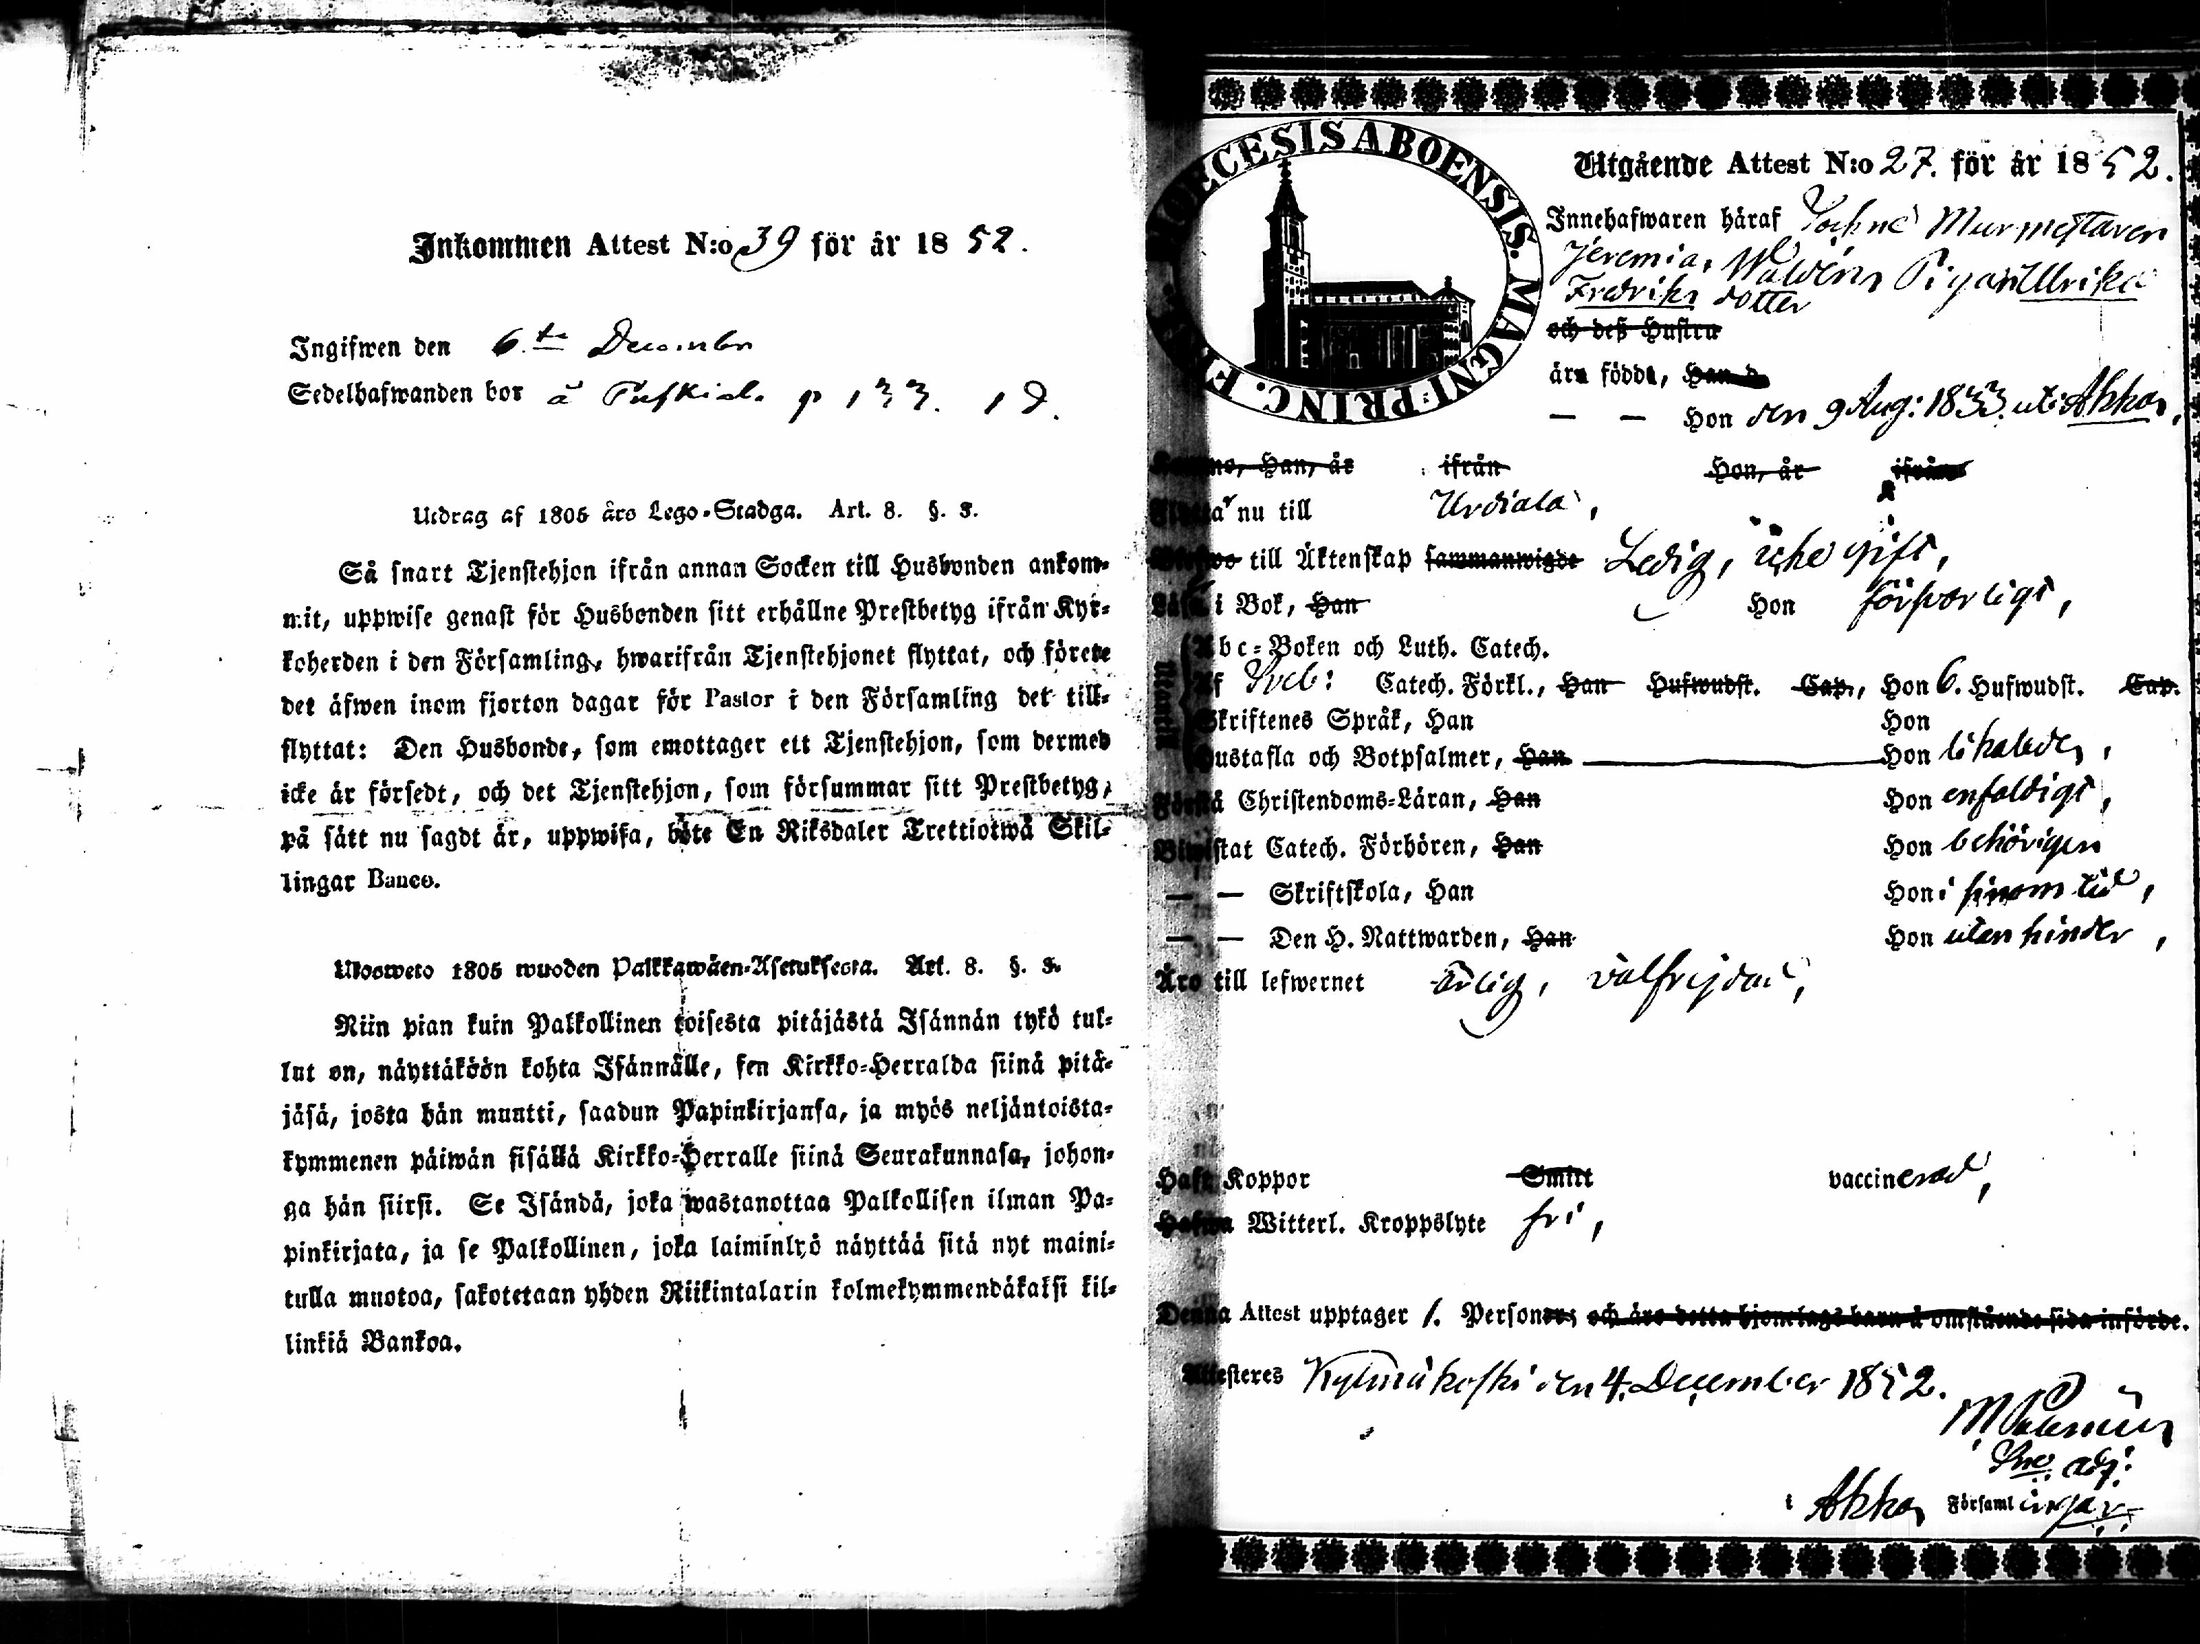 Inkommen Attest N:o 39 för år 1852.
Ingifwen den 6.te December
Sedelhafwanden bor å p 133. 19.
Utdrag af 1805 års Lego-Stadga. Art. 8. §. 3.
Så snart Tjenstehjon ifrån annan Socken till Husbonden ankom-
mit, uppwise genast för Husbonden sitt erhållne Prestbetyg ifrån Kyr-
koherden i den Församling, hwarifrån Tjenstehjonet flyttat, och förete
det äfwen inom fjorton dagar för Pastor i den Församling det till-
flyttat: Den Husbonde, som emottager ett Tjenstehjon, som dermed
icke är försedt, och det Tjenstehjon, som försummar sitt Prestbetyg,
på sätt nu sagdt är, uppwisa, böte En Riksdaler Trettiotwå Skil-
lingar Banco.
Ulosweto 1805 wuoden Palkkawäen-Asetuksesta. Art. 8. §. 3.
Niin pian kuin Palkollinen toisesta pitäjästä Isännän tykö tul-
lut on, näyttäköön kohta Isännälle, sen Kirkko-Herralda siinä pitä-
jäsä, josta hän muutti, saadun Papinkirjansa, ja myös neljäntoista-
kymmenen päiwän sisällä Kirkko-Herralle siinä Seurakunnasa, johon-
ga hän siirsi. Se Isändä, joka wastanottaa Palkollisen ilman Pa-
pinkirjata, ja se Palkollinen, joka laiminlyö näyttää sitä nyt maini-
tulla muotoa, sakotetaan yhden Riikintalarin kolmekymmendäkaksi kil-
linkiä Bankoa.
DIOECESIS ABOENSIS. MAGNI PRINC. F
Utgående Attest N:o 27. för år 1852.
Innehafwaren häraf Murmestaren
Jeremias Waldéns Pigan Ulrika
Fredriks dotter
och deß Hustru
äro födde, Han d
— — Hon den 9 Aug: 1833. uti Akkas,
Han, år ifrån Hon, år ifrån
Flytta nu till Urdiala,
till Äktenskap sammanwigde Ledig, icke gift,
Läsa i Bok, Han Hon försvarligt,
Utantill
Abc-Boken och Luth. Catech.
Af Sveb: Catech. Förkl., Han Hufwudst. Cap., Hon 6. Hufwudst. Cap.
Skriftenes Språk, Han Hon
Hustafla och Botpsalmer, Han Hon likaledes,
Förstå Christendoms-Läran, Han Hon enfaldigt,
Biwistat Catech. Förhören, Han Hon behörigen
— — Skriftskola, Han Hon i sinom tid,
— — Den H. Nattwarden, Han Hon utan hinder,
Äro till lefwernet ärlig, välfrejdad,
Haft Koppor Smitt vaccinerad,
Hafwa Witterl. Kroppslyte fri,
Denna Attest upptager 1. Personer; och äro detta hjonelags barn å omstående sida införde.
Attesteres Kylmäkoski den 4. December 1852.
adj:
i Akkas Församlingar